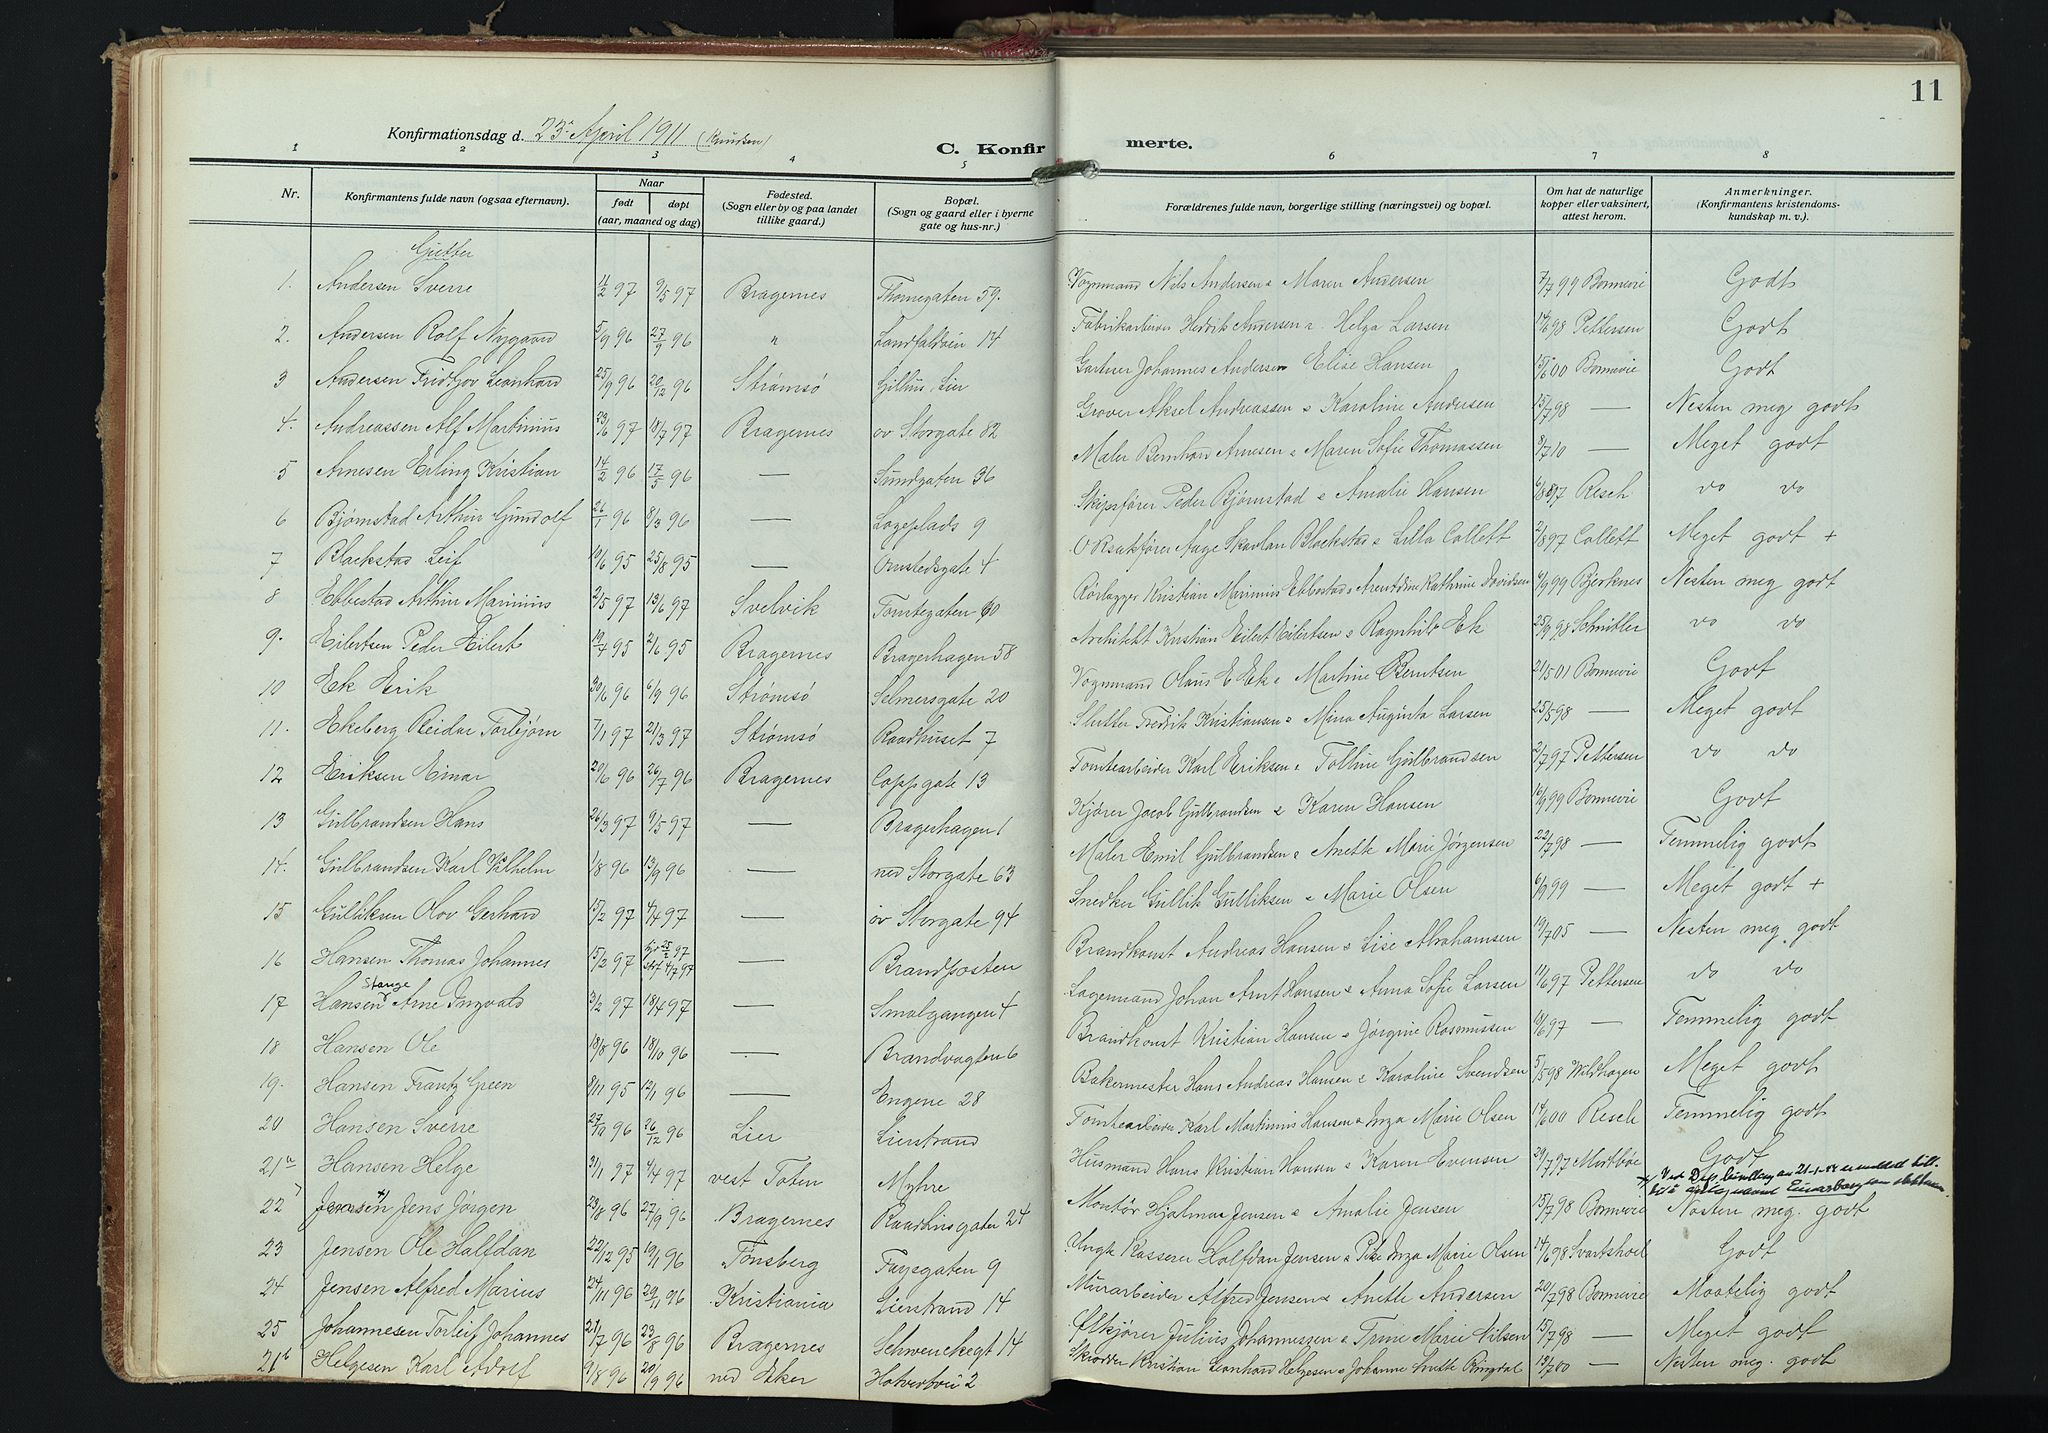 11
Konfirmationsdag d. 23. April 1911 (Knudsen)
C. Konfirmerte.
1 2 3 4 5 6 7 8
Nr. Konfirmantens fulde navn (ogsaa efternavn). Naar født døpt (aar, maaned og dag) Fødested. (Sogn eller by og paa landet tillike gaard.) Bopæl. (Sogn og gaard eller i byerne gate og hus-nr.) Forældrenes fulde navn, borgerlige stilling (næringsvei) og bopæl. Om hat de naturlige kopper eller vaksinert, attest herom. Anmerkninger. (Konfirmantens kristendomskundskap m. v.).
Gutter
1. Andersen Sverre 11/2 97 9/5 97 Bragernes Thornegaten 59. Vognmand Nils Andersen & Maren Andersen 7/7 99 Bonnevie Godt
2. Andersen Rolf Nygaard 5/9 96 27/9 96 " Landfaldveien 14 Fabrikarbeider Hedrik Andersen & Helga Larsen 14/6 98 Pettersen Godt
3 Andersen Fridtjov Leonhard 25/9 96 20/12 96 Strømsø Gilhus, Lier Gartner Johannes Andersen Elise Hansen 15/6 00 Bonnevie Godt
4. Andreassen Alf Martinius 23/6 97 18/7 97 Bragernes øv Storgate 82 Graver Aksel Andreassen & Karoline Andersen 15/7 98 — Nesten meg godt
5 Arnesen Erling Kristian 14/2 96 17/5 96 — Sundgaten 36 Maler Bernhard Arnesen & Maren Sofie Thomassen 8/7 10 — Meget godt
6 Bjørnstad Arthur Gundolf 26/1 96 8/3 96 — Løgeplads 9 Skipsfører Peder Bjørnstad & Amalie Hansen 6/8 97 Resch do do
7 Blackstad Leif 10/6 95 25/8 95 — Ørnstedsgate 4 O R sakfører Aage Skavlan Blackstad & Lilla Collett 2/8 97 Collett Meget godt +
8 Ebbestad Arthur Marinius 2/5 97 13/6 97 Svelvik Tomtegaten 60 Rørlægger Kristian Marinius Ebbestad & Arentdine Kathrine Davidsen 4/9 99 Bjerknes Nesten meg godt
9. Eilertsen Peder Eilert 19/4 95 2/6 95 Bragernes Bragerhagen 58 Architekt Kristian Eilert Eilertsen & Ragnhild Ek 25/9 98 Schnitler do do
10 Ek Erik 30/6 96 6/9 96 Strømsø Selmersgate 20 Vognmand Olaus E Ek & Martine Berntsen 21/5 01 Bonnevie Godt
11. Ekeberg Reidar Torbjørn 7/1 97 21/3 97 Strømsø Raadhuset 7 Slutter Fredrik Kristiansen & Mina Augusta Larsen 25/5 98 — Meget godt
12 Eriksen Einar 20/6 96 26/7 96 Bragernes Coppgate 13 Tomtearbeider Karl Eriksen & Tolline Gulbrandsen 2/7 97 Pettersen do do
13 Gulbrandsen Hans 26/3 97 9/5 97 — Bragerhagen 1 Kjører Jacob Gulbrandsen & Karen Hansen 16/9 99 Bonnevie Godt
14. Gulbrandsen Karl Vilhelm 1/8 96 13/9 96 — ned Storgate 63 Maler Emil Gulbrandsen & Anette Marie Jørgensen 22/7 98 — Temmelig godt
15 Gulliksen Olov Gerhard 15/2 97 4/4 97 — øv Storgate 94 Snedker Gullik Gulliksen & Marie Olsen 6/9 99 — Meget godt +
16 Hansen Thomas Johannes 15/2 97 25/2 97 4/7 97 — Brandposten Brandkonst Andreas Hansen & Lise Abrahamsen 19/7 05 — Nesten meg godt
17 Hansen Stange Arne Ingvald 3/2 97 18/4 97 — Smalgangen 4 Lagermand Johan Arnt Hansen & Anna Sofie Larsen 11/6 97 Pettersen do do
18 Hansen Ole 18/8 96 18/10 96 — Brandvagten 6 Brandkonst Kristian Hansen & Jørgine Rasmussen 10/6 97 — Temmelig godt
19. Hansen Frantz Green 8/11 95 12/1 96 — Engene 28 Bakermester Hans Andreas Hansen & Karoline Svendsen 5/5 98 Wildhagen Meget godt
20 Hansen Sverre 27/11 96 26/12 96 Lier Lierstrand Tomtearbeider Karl Martinius Hansen & Inga Marie Olsen 14/6 00 Resch Temmelig godt
21a Hansen Helge 31/1 97 4/4 97 vest Toten Myhre Husmand Hans Kristian Hansen & Karen Evensen 29/7 97 Midtbøe Godt
22 Jensen Jens Jørgen 23/8 96 27/9 96 Bragernes Raadhusgaten 24 Montør Hjalmar Jensen & Amalie Jensen 15/7 98 Bonnevie Nesten meg. godt
23 Jensen Ole Halfdan 22/12 95 19/1 96 Tønsberg Fayesgaten 9 Ungk Kasserer Halfdan Jensen & Pike Inga Marie Olsen 14/6 98 Svartshoel Godt
24 Jensen Alfred Marius 24/11 96 29/11 96 Kristiania Lierstrand 14 Murarbeider Alfred Jensen & Anette Andersen 20/7 98 Bonnevie Maatelig godt
25 Johannesen Torleif Johannes 21/7 96 23/8 96 Bragernes Schwenckegt 14 Ølkjører Julius Johannessen & Trine Marie Nilsen 15/7 98 — Meget godt
21b Helgesen Karl Adolf 9/8 96 20/9 96 ned Eker Hotvedtvei 2 Skrædder Kristian Leonhard Helgesen & Johanne Anette Ringdal 18/7 00 — Nesten meg. godt